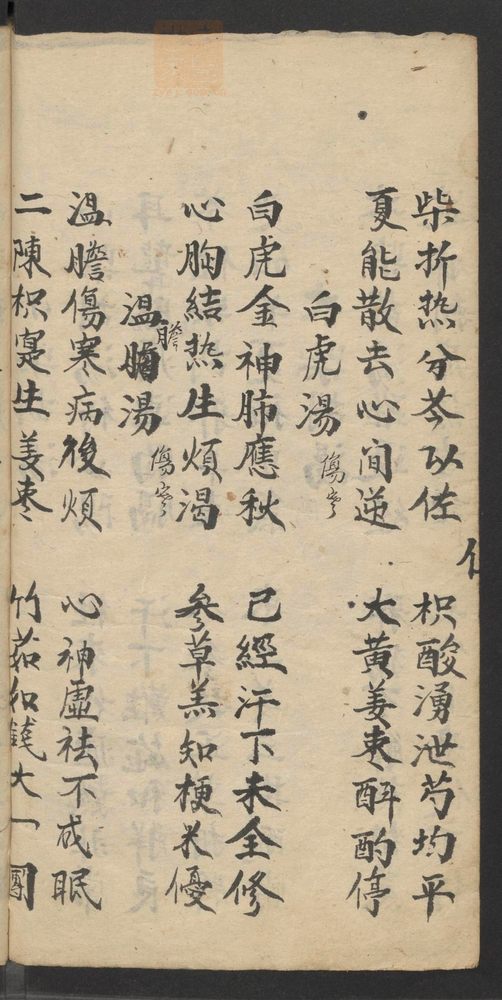 柴折热分芩以佐 枳酸湧泄芍均平
夏能散去心间逆 大黄姜枣酙酌停
白虎湯 傷寒
白虎金神肺應秋 已經汗下未全修
心胸結热生煩渴 參草羔知梗米優
温膽湯 傷寒
温膽傷寒病後煩 心神虛祛不成眠
二陳枳寔生姜枣 竹茹如錢大一團